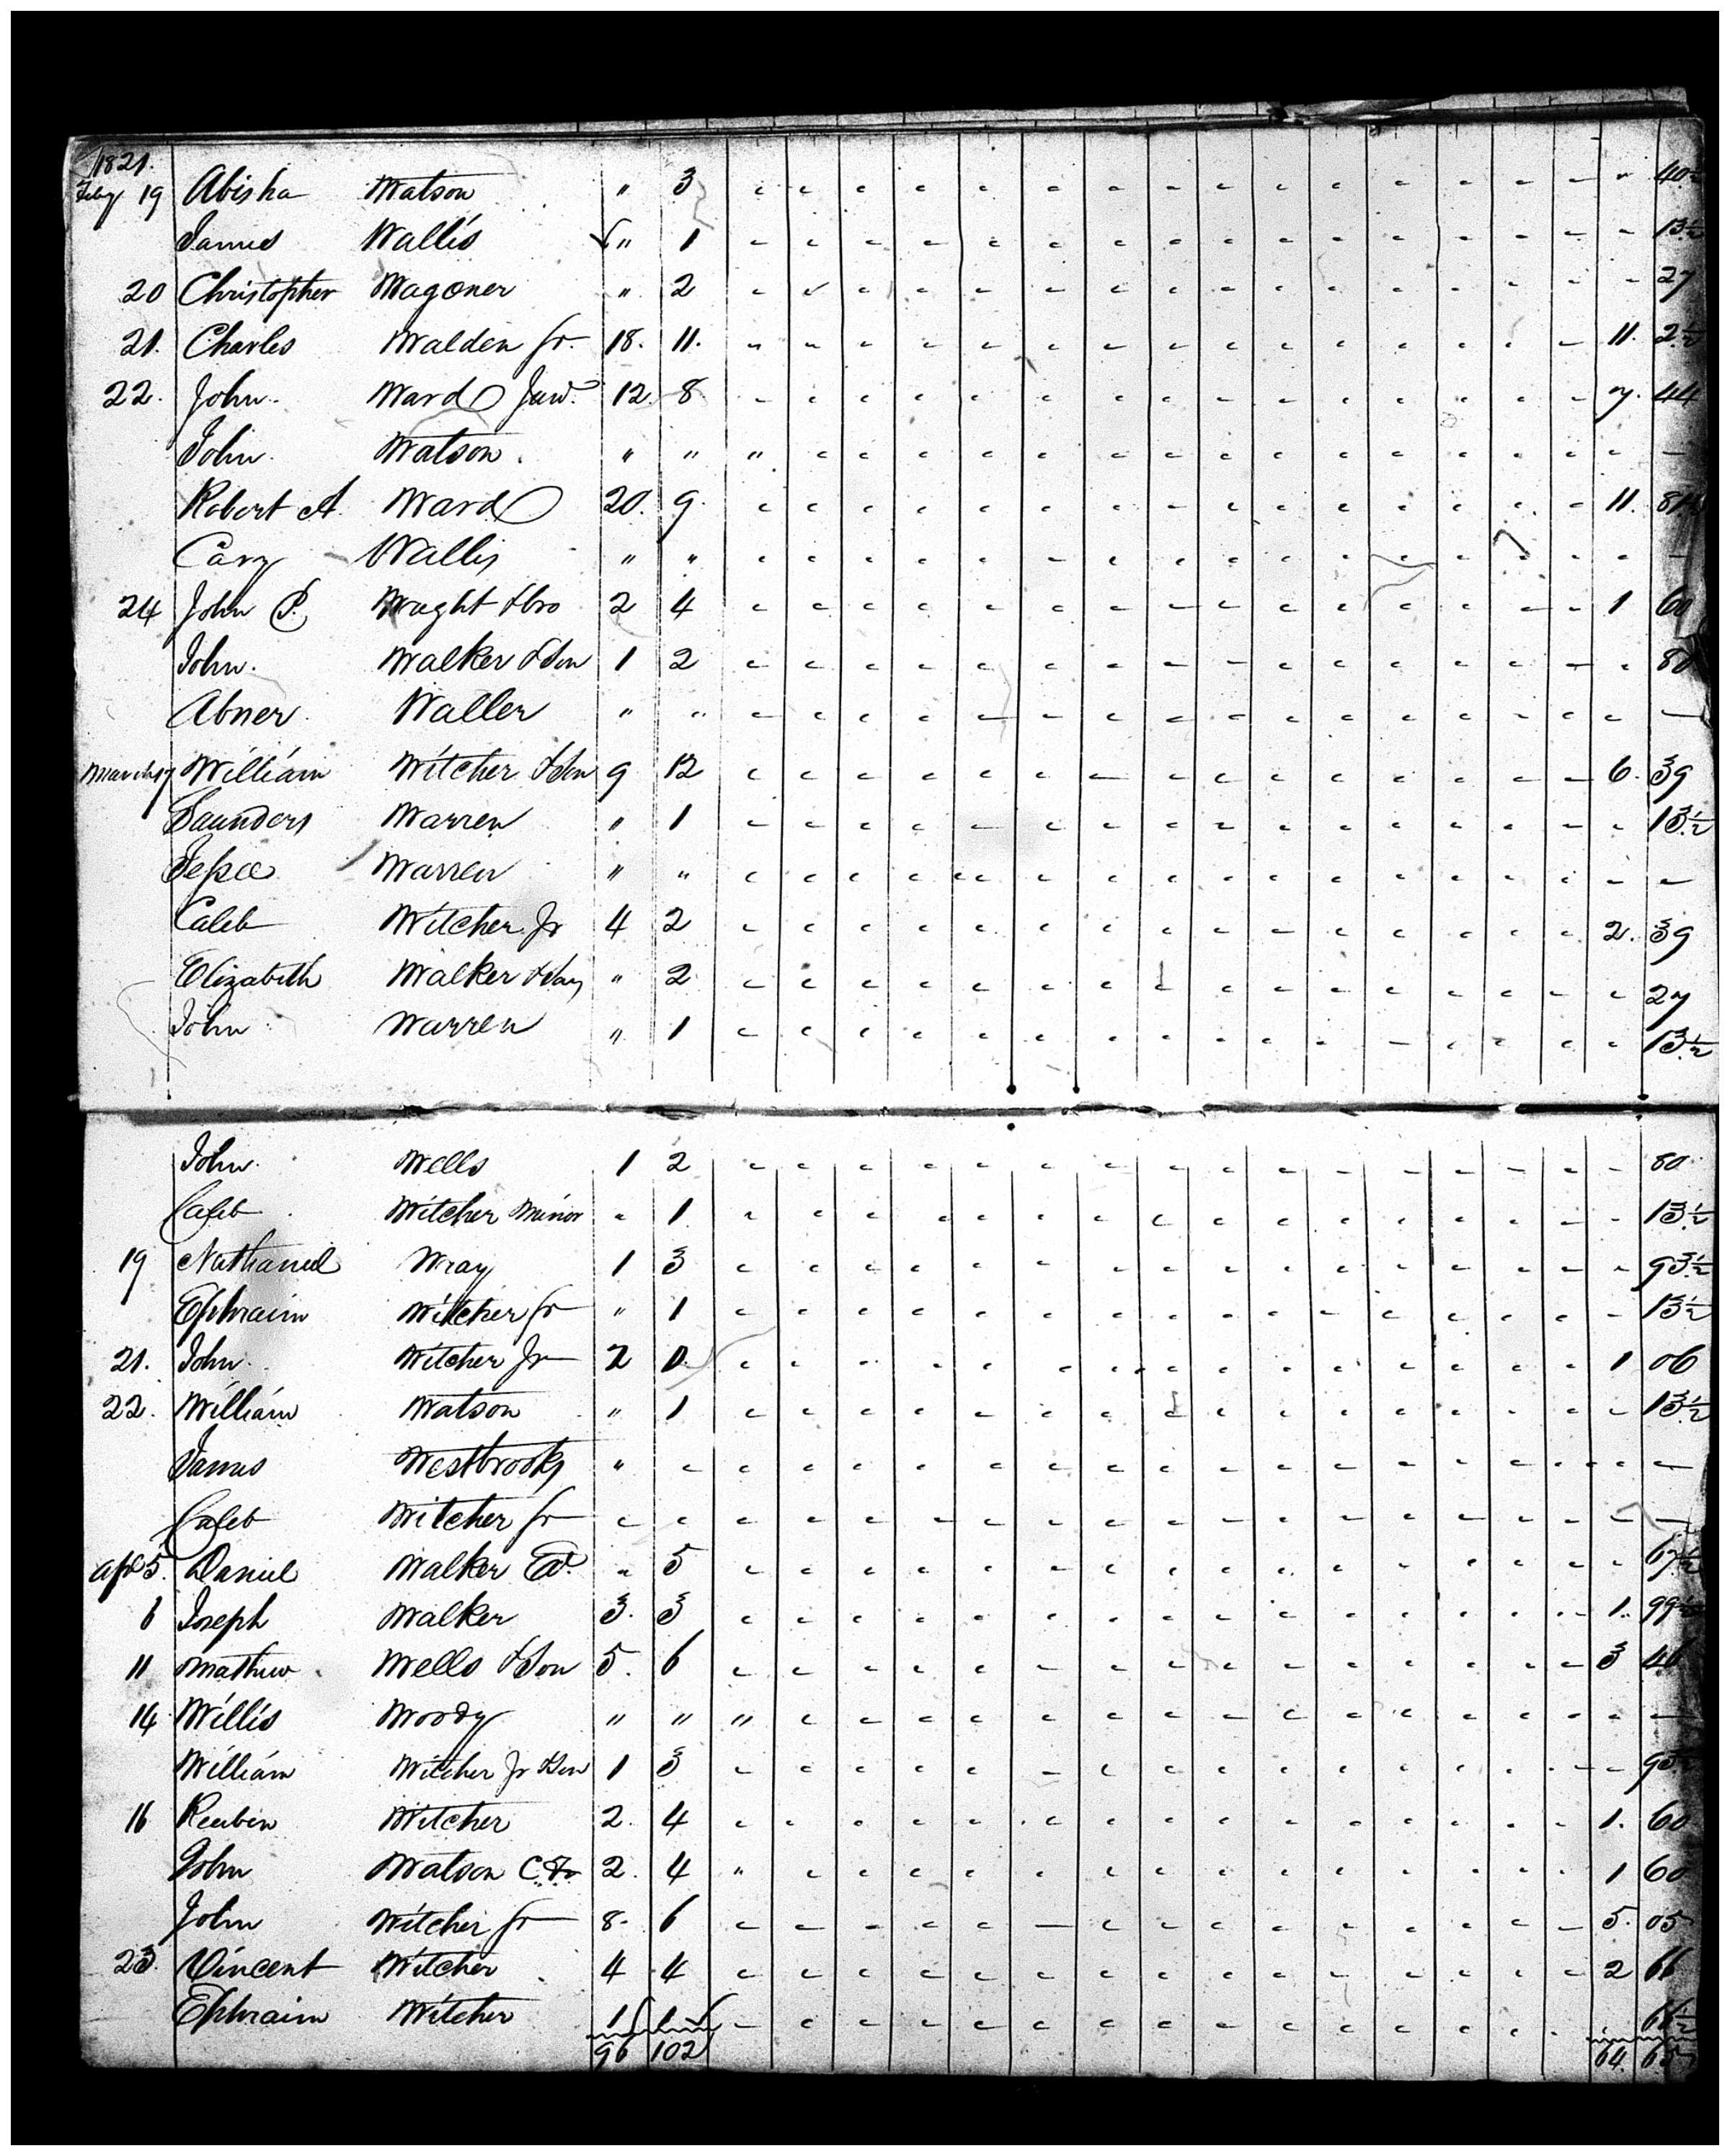 1821.
Feby 19 Abisha Watson " 3 40½
James Wallis " 1 13½
20 Christopher Wagoner " 2 27
21. Charles Walden Sr. 18. 11. 11. 2½
22. John Ward 12. 8 7. 44
John Watson " " " —
Robert A Ward 20. 9. 11. 81½
Cary Wallis " " -
24 John P. Wright & bro 2 4 1 60
John Walker & Son 1 2 80
Abner Waller " " —
March 17 William Witcher & Son 9 12 6. 39
Saunders Warren " 1 13½
Jesse Warren " " -
Caleb Witcher Jr 4 2 2. 39
Elizabeth Walker " 2 27
John Warren " 1 13½
John Wells 1 2 80
Caleb Witcher Minor " 1 13½
19 Nathaniel Wray 1 3 93½
Ephraim Witcher Sr " 1 13½
21. John Witcher Jr 2 0 1 06
22. William Watson " 1 13½
James Westbrook " —
Caleb Witcher Sr —
apl 5. Daniel Walker Est. " 5 67½
6 Joseph Walker 3. 3 1. 99½
11 Mathew Wells & Son 5. 6 3 46
14 Willis Woody " " " —
William Witcher Jr & Son 1 3 93½
16 Reuben Witcher 2. 4 1. 60
John Watson 2. 4 " 1 60
John Witcher Sr 8. 6 5. 05
23. Vincent Witcher 4 4 2 66
Ephraim Witcher 1 1 66½
96 102 64. 65